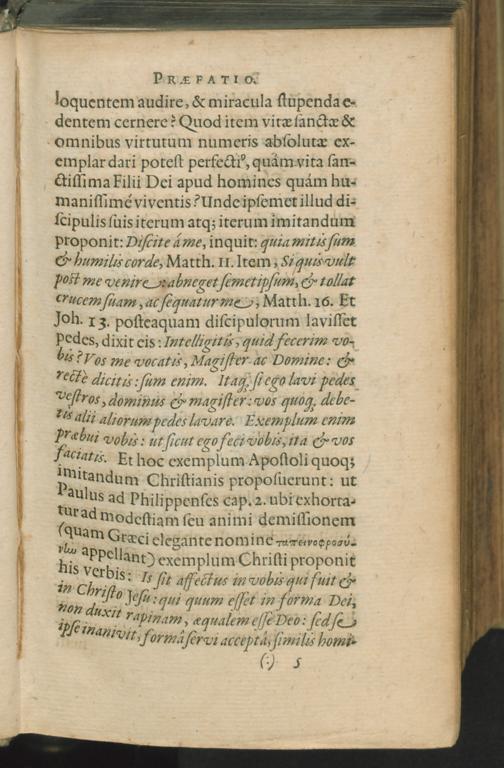 PRÆFATIO.
loquentem audire, & miracula stupenda e-
dentem cernere? Quod item vitæ sanctæ &
omnibus virtutum numeris absolutæ ex-
emplar dari potest perfectiꝰ, quàm vita san-
ctissima Filii Dei apud homines quám hu-
manissimé viventis? Unde ipsemet illud di-
scipulis suis iterum atq; iterum imitandum
proponit: Discite á me, inquit: quia mitis sum
& humilis corde, Matth. 11. Item, Si quis vult
post me venire: abneget semetipsum, & tollat
crucem suam, ac sequatur me, Matth. 16. Et
Joh. 13. posteaquam discipulorum lavisset
pedes, dixit eis: Intelligitis, quid fecerim vo-
bis? Vos me vocatis, Magister ac Domine: &
rectè dicitis: sum enim. Itaq; si ego lavi pedes
vestros, dominus & magister: vos quoq; debe-
tis alii aliorum pedes lavare. Exemplum enim
præbui vobis: ut sicut ego feci vobis, ita & vos
faciatis. Et hoc exemplum Apostoli quoq;
imitandum Christianis proposuerunt: ut
Paulus ad Philippenses cap. 2. ubi exhorta-
tur ad modestiam seu animi demissionem
(quam Græci elegante nomine ταπεινοφροσύ-
νlω appellant) exemplum Christi proponit
his verbis: Is sit affectus in vobis qui fuit &
in Christo Jesu: qui quum esset in forma Dei,
non duxit rapinam, æqualem esse Deo: sed se
ipse inanivit, formâ servi acceptâ, similis homi-
(:) 5